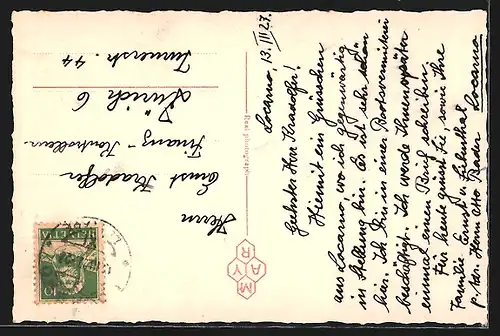 Locarno, 13. III 27.
Geehrter Herr Kradolfer!
Hiermit ein Grüsschen
aus Locarno, wo ich gegenwärtig
in Stellung bin. Es ist sehr schön
hier. Ich bin in einer Bootsvermieterei
beschäftigt. Ich werde Ihnen später
einmal einen Brief schreiben.
Für heute grüsst Sie, sowie Ihre
Familie Ernst
p. Adr. Herrn Otto Bader Locarno
Real photograph
MAYR
Herrn
Ernst Kradolfer
Finanz-Kontrolleur
Zürich 6
44
HELVETIA
10